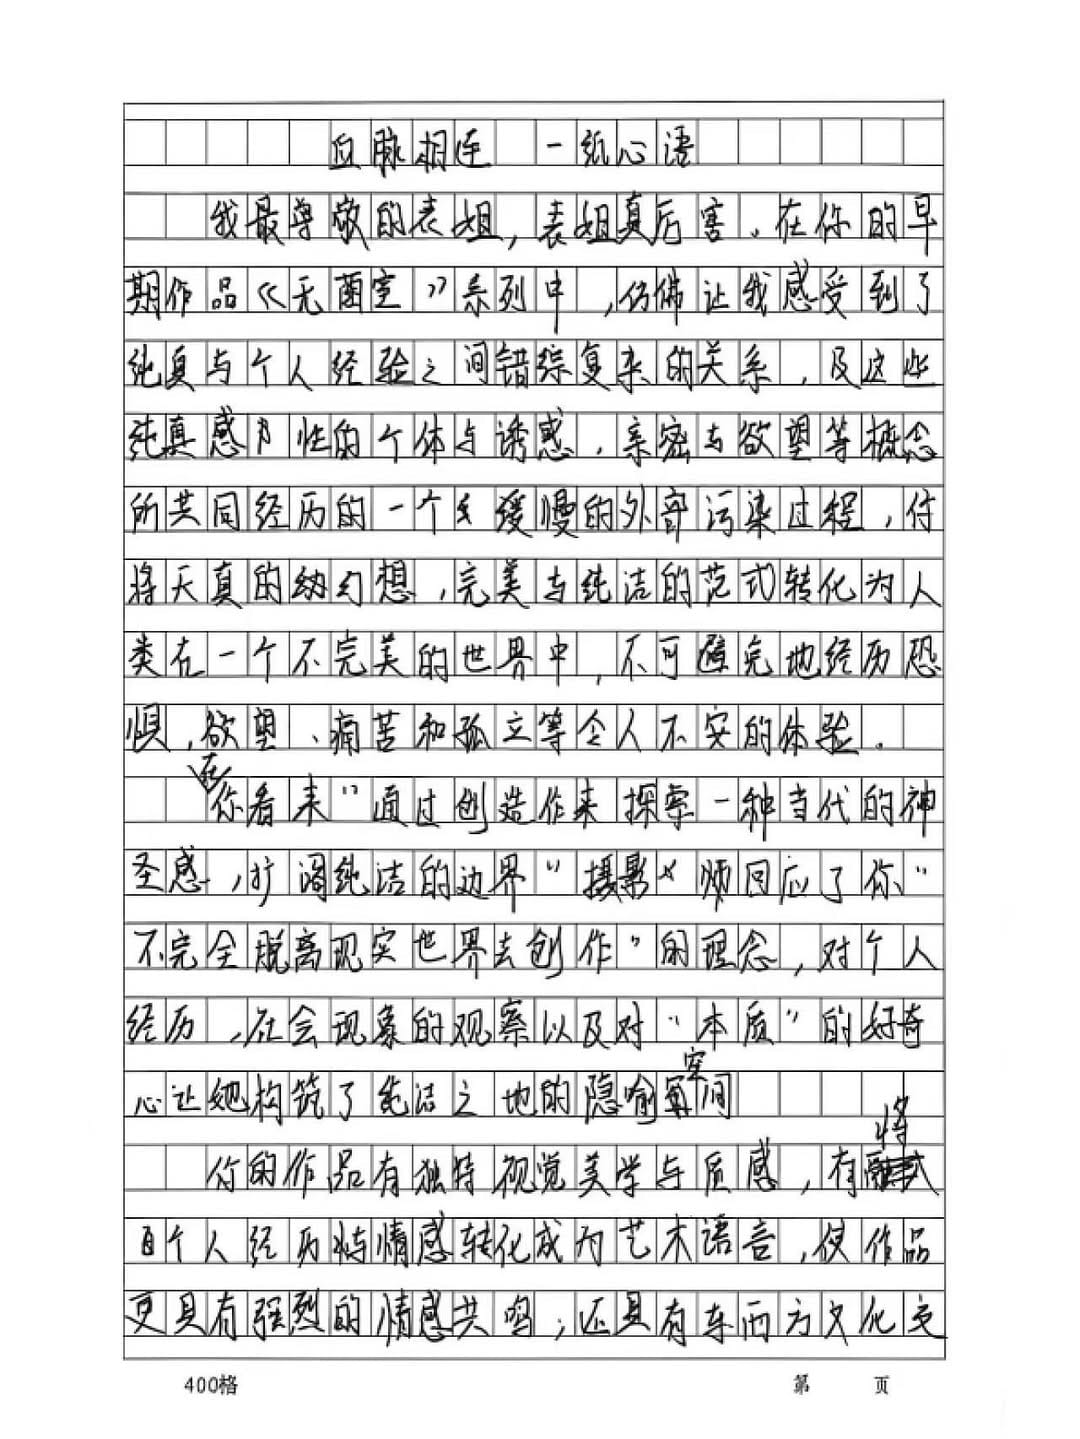 血脉相连 一纸心语
我最尊敬的表姐,表姐真厉害。在你的早
期作品《无菌室》系列中,仿佛让我感受到了
纯真与个人经验之间错综复杂的关系,及这些
纯真感 性的个体与诱惑,亲密与欲望等概念
所共同经历的一个 缓慢的外部污染过程,你
将天真的幼幻想,完美与纯洁的范式转化为人
类在一个不完美的世界中,不可避免地经历恐
惧,欲望、痛苦和孤立等令人不安的体验。
在你看来"通过创造作来探索一种当代的神
圣感,扩阔纯洁的边界"摄影 师回应了你"
不完全脱离现实世界去创作"的理念,对个人
经历,社会现象的观察以及对"本质"的好奇
心让她构筑了纯洁之地的隐喻空间
你的作品有独特视觉美学与质感,有将
自个人经历 情感转化成为艺术语言,使作品
更具有强烈的情感共鸣,还具有东西方文化交
400格 第 页